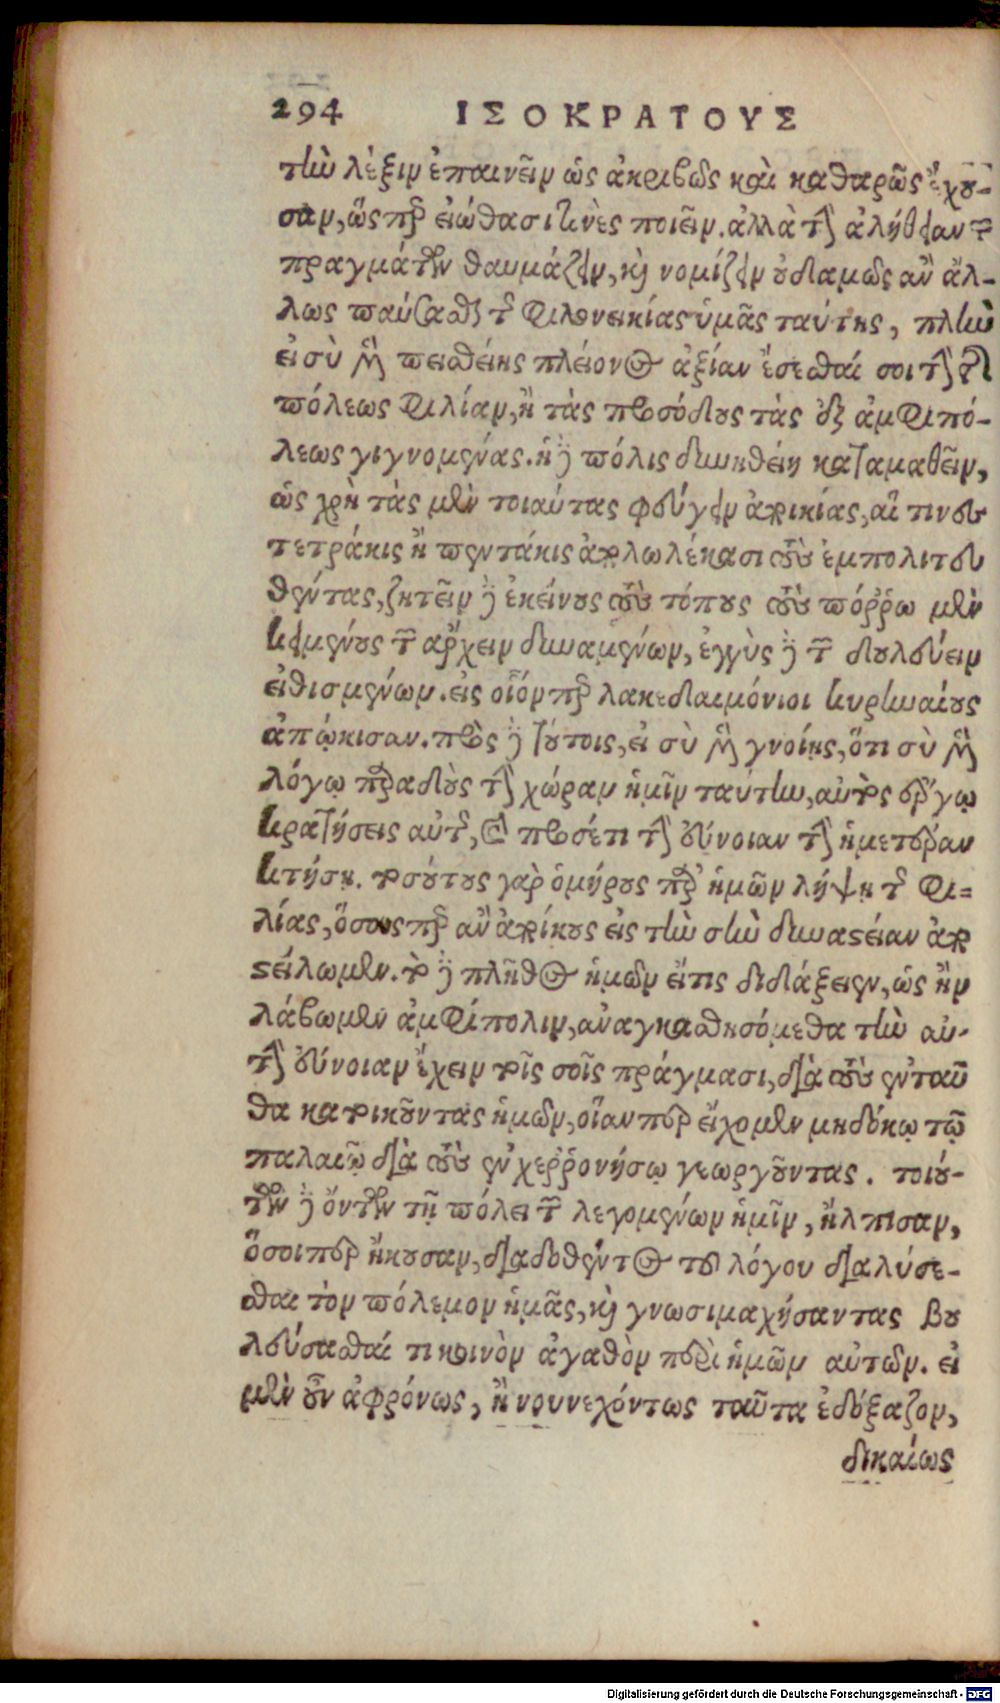 294 ΙΣΟΚΡΑΤΟΥΣ
τὴν λέξιν ἐπαινεῖν ὡς ἀκριβῶς καὶ καθαρῶς ἔχου-
σαν, ὥς περ εἰώθασί τινὲς ποιεῖν. ἀλλὰ τὴν ἀλήθειαν τῶν
πραγμάτων θαυμάζειν, καὶ νομίζειν οὐδαμῶς ἂν ἄλ-
λως παύσασθαι τῆς φιλονεικίας ὑμᾶς ταύτης, πλὴν
εἰ σὺ μὲν πεισθείης πλείονος ἀξίαν ἔσεσθαί σοι τὴν τῆς
πόλεως φιλίαν, ἢ τὰς προσόδους τὰς ἐξ ἀμφιπό-
λεως γιγνομένας. ἡ δὲ πόλις δυνηθείη καταμαθεῖν,
ὡς χρὴ τὰς μὲν τοιαύτας φεύγειν ἀποικίας, αἵ τινες
τετράκις ἢ πεντάκις ἀπολωλέκασι τοὺς ἐμπολιτευ
θέντας, ζητεῖν δὲ ἐκείνους τοὺς τόπους τοὺς πόρρω μὲν
κειμένους τῶν ἄρχειν δυναμένων, ἐγγὺς δὲ τῶν δουλεύειν
εἰθισμένων. εἰς οἷόν περ λακεδαιμόνιοι κυρηναίους
ἀπῴκισαν. πρὸς δὲ τούτοις, εἰ σὺ μὲν γνοίης, ὅτι σὺ μὲν
λόγῳ παραδοὺς τὴν χώραν ἡμῖν ταύτην, αὐτὸς ἔργῳ
κρατήσεις αὐτῆς, καὶ προσέτι τὴν εὔνοιαν τὴν ἡμετέραν
κτήσῃ. τοσούτους γὰρ ὁμήρους παρ' ἡμῶν λήψῃ τῆς φι-
λίας, ὅσους περ ἂν ἀποίκους εἰς τὴν σὴν δυναστείαν ἀπο
στείλωμεν. τὸ δὲ πλῆθος ἡμῶν εἴ τις διδάξειεν, ὡς ἢν
λάβωμεν ἀμφίπολιν, ἀναγκασθησόμεθα τὴν αὐ-
τὴν εὔνοιαν ἔχειν τοῖς σοῖς πράγμασι, διὰ τοὺς ἐνταῦ
θα κατοικοῦντας ἡμῶν, οἵαν περ εἴχομεν μηδόκῳ τῷ
παλαιῷ διὰ τοὺς ἐν χερρονήσῳ γεωργοῦντας. τοιού-
των δὲ ὄντων τῇ πόλει τῶν λεγομένων ἡμῖν, ἤλπισαν,
ὅσοι περ ἤκουσαν, διαδοθέντος τοῦ λόγου διαλύσε-
σθαι τὸν πόλεμον ἡμᾶς, καὶ γνωσιμαχήσαντας βου
λεύσασθαί τι κοινὸν ἀγαθὸν περὶ ἡμῶν αὐτῶν. εἰ
μὲν οὖν ἀφρόνως, ἢ νουνεχόντως ταῦτα ἐδόξαζον,
δικαίως
Digitalisierung gefördert durch die Deutsche Forschungsgemeinschaft - DFG